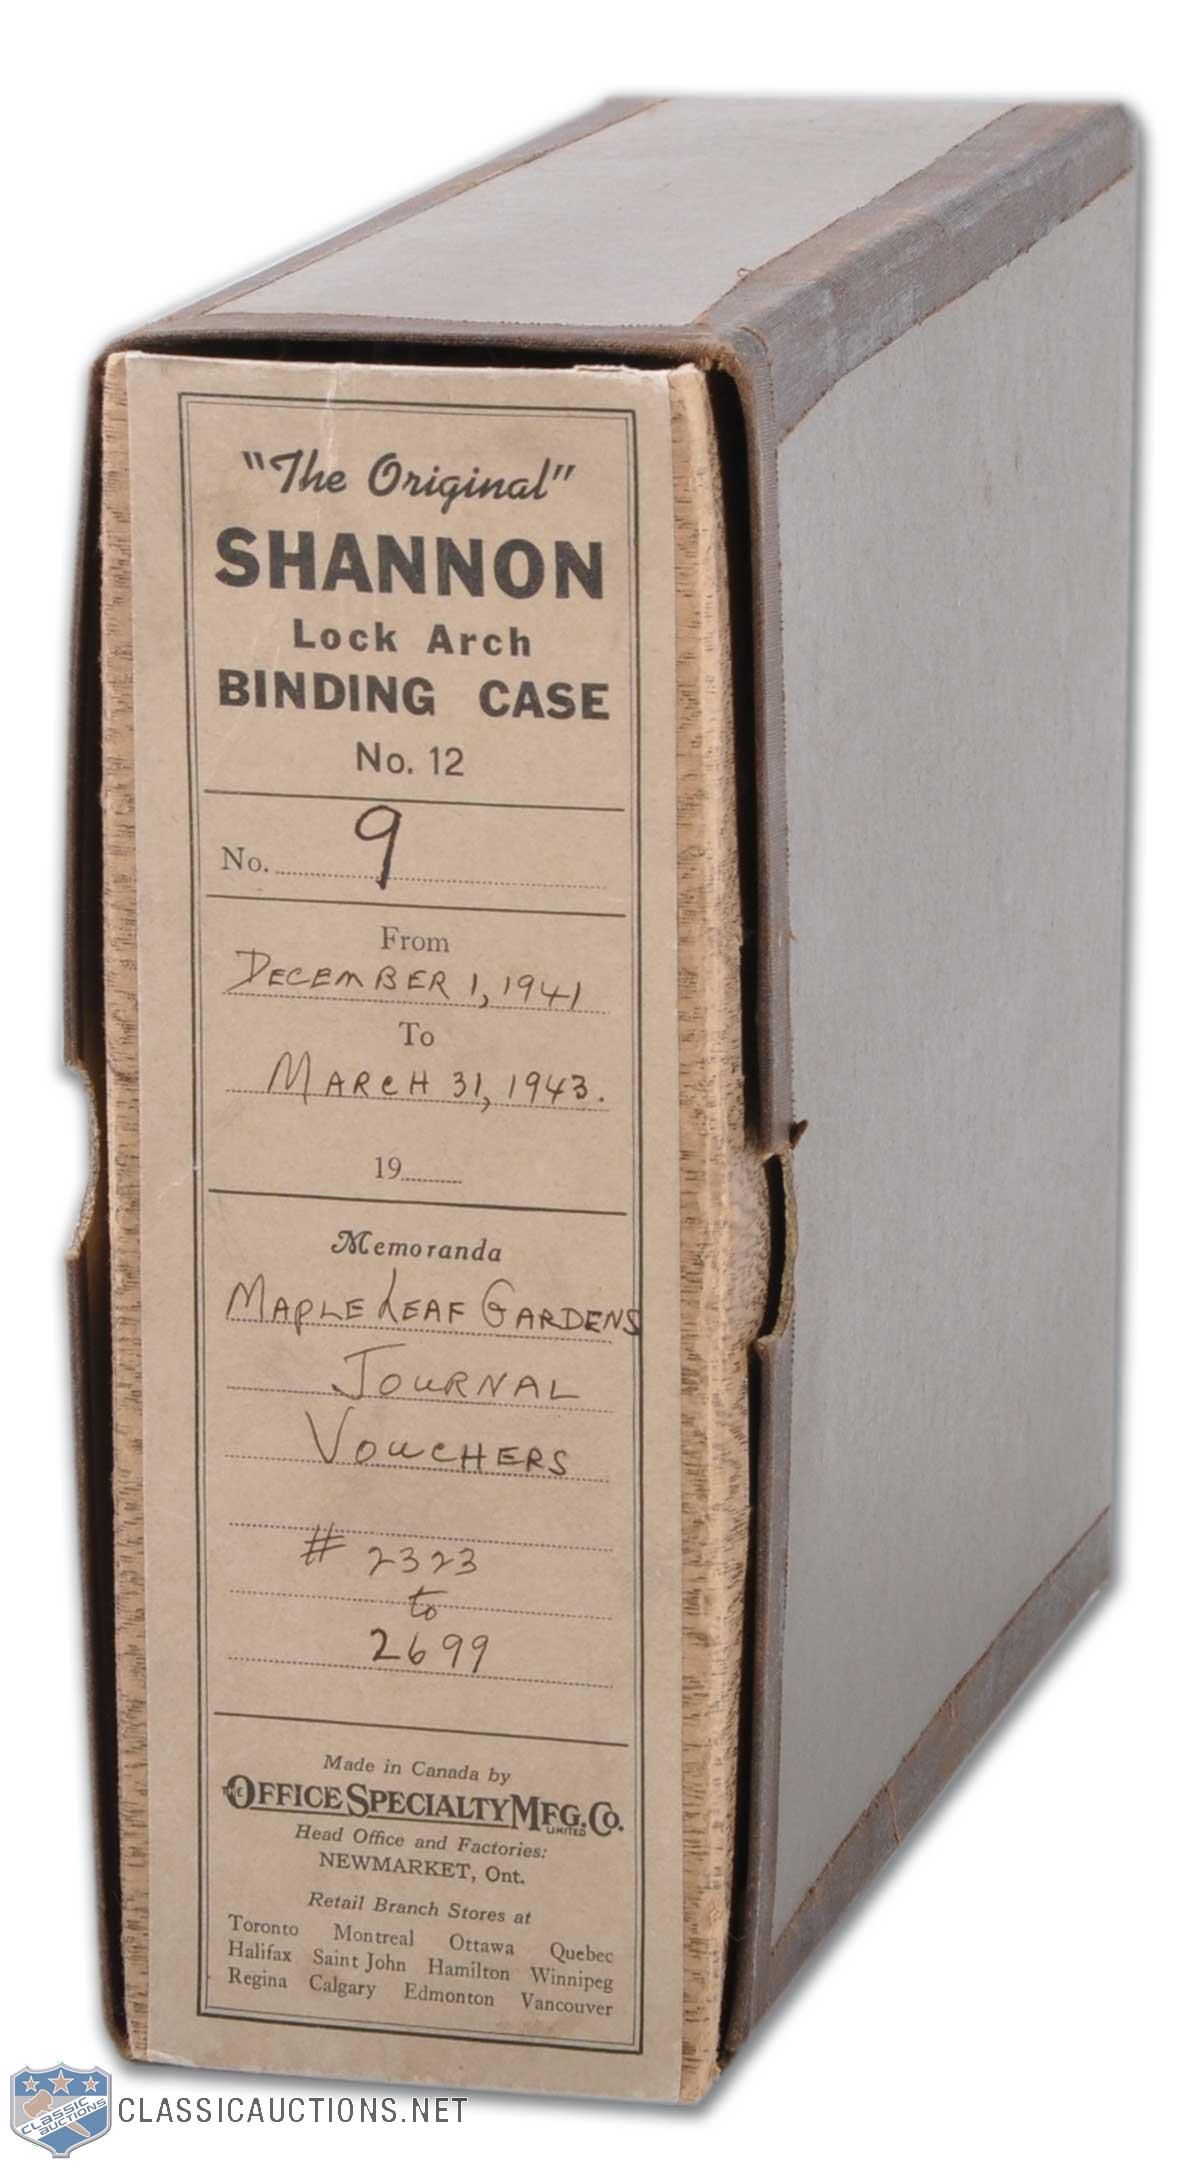 "The Original"
SHANNON
Lock Arch
BINDING CASE
No. 12
No. 9
From
DECEMBER 1, 1941
To
MARCH 31, 1943.
19
Memoranda
MAPLE LEAF GARDENS
JOURNAL
VOUCHERS
# 2323
to
2699
Made in Canada by
THE OFFICE SPECIALTY MFG. CO.
LIMITED
Head Office and Factories:
NEWMARKET, Ont.
Retail Branch Stores at
Toronto Montreal Ottawa Quebec
Halifax Saint John Hamilton Winnipeg
Regina Calgary Edmonton Vancouver
CLASSIC
AUCTIONS
CLASSICAUCTIONS.NET